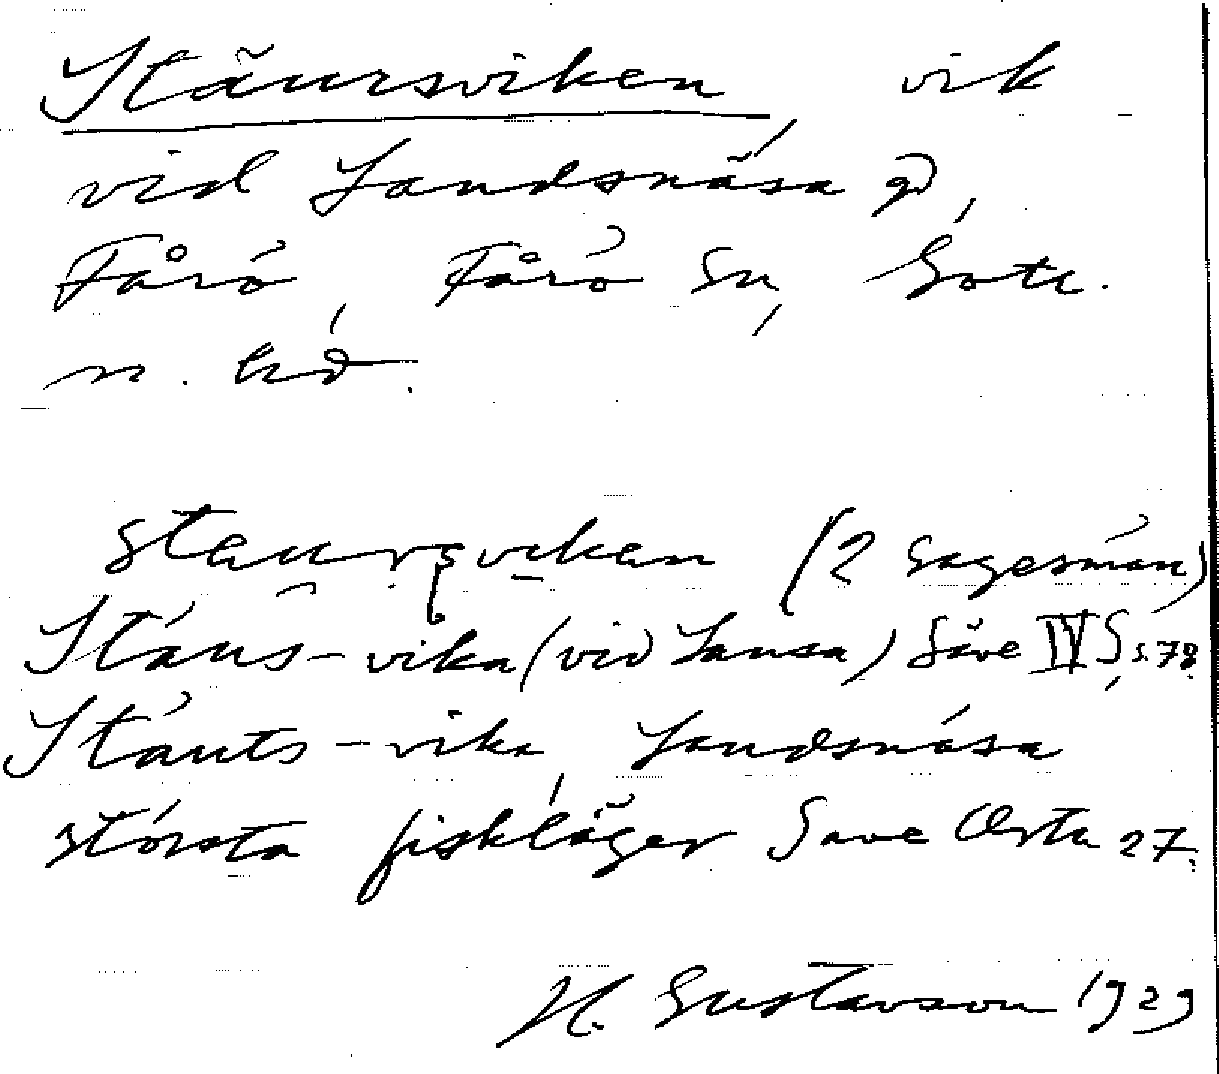 Stäursviken, vik
vid Landsnäsa gd,
Fårö, Fårö sn, Gotl.
n. hd.
staursviken (2 sagesmän)
Stáus-vika (vid Lansa) Säve IV S, s. 78.
Stáuts-vika, Landsnäsa
största fiskläger Säve Ortn 27.
H. Gustavson 1929